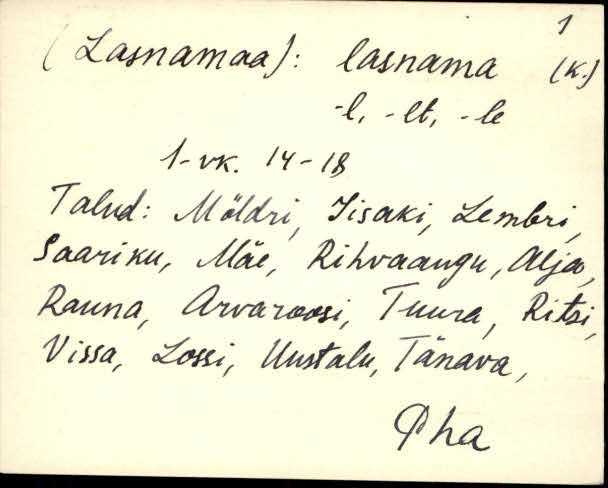 1
(Lasnamaa): lasnama (k.)
-l, -lt, -le
1-vk. 14-18
Talud: Möldri, Iisaki, Lembri,
Saariku, Mäe, Rihvaangu, Alja,
Rauna, Arvaroosi, Tuura, Ritsi,
Vissa, Lossi, Uustalu, Tänava,
Pha